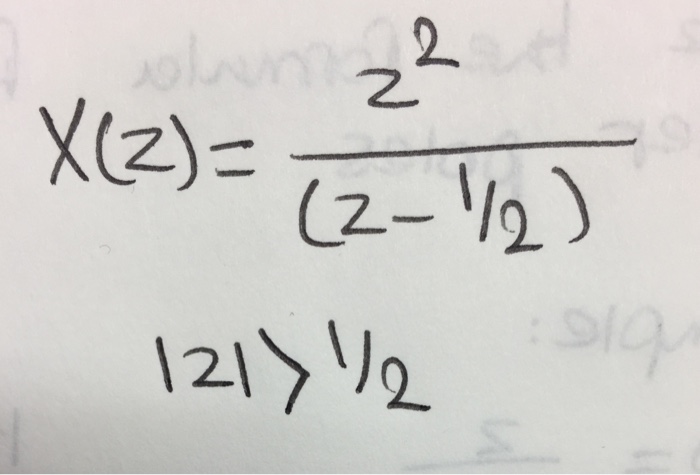 X(z) = z² / (z - 1/2)
|z| > 1/2